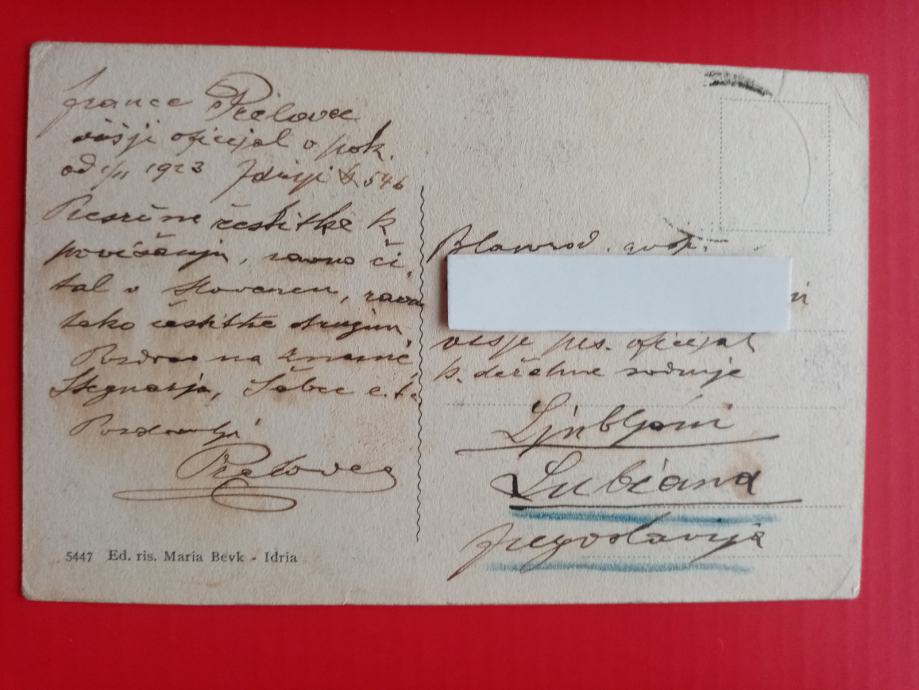 France Prelovec
višji oficijal v pok.
od 1/11 1923 Idriji № 546
Presrčne čestitke k
povišanju, ravno či,
tal v Slovencu, ravno
tako čestitke drugim
Pozdrav na znance,
Stegnarja, Šabec e.t.c.
Pozdravlja
Prelovec
Blagorod. gosp.
višje pis. oficijal
k. deželne sodnije
Ljubljani
Lubiana
Jugoslavija
5447 Ed. ris. Maria Bevk - Idria